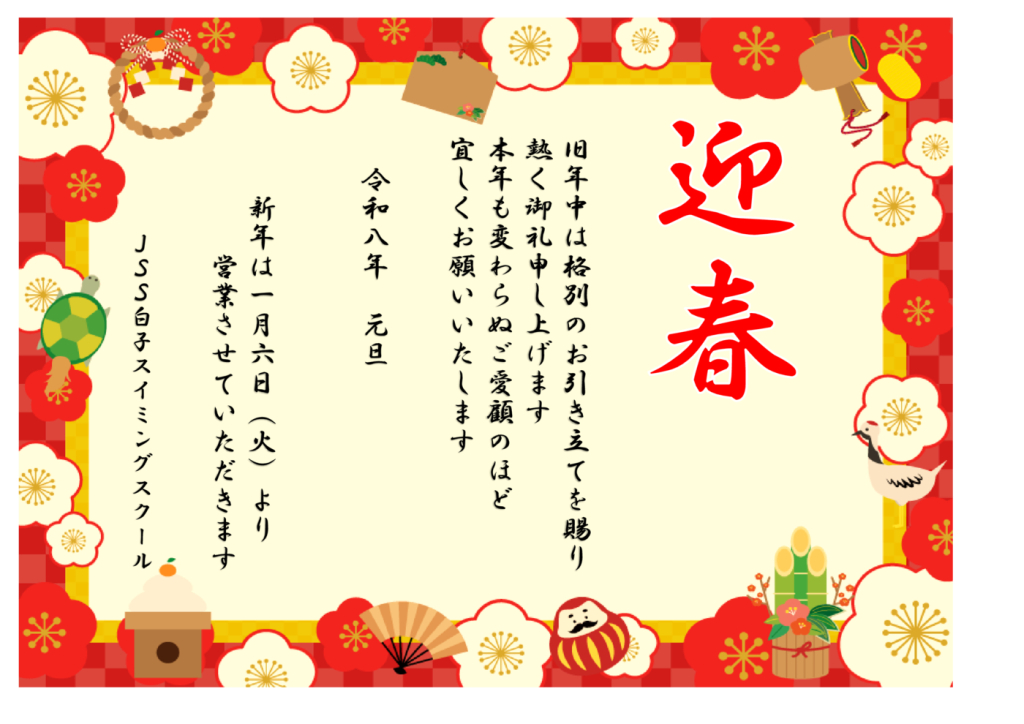 迎春
旧年中は格別のお引き立てを賜り
熱く御礼申し上げます
本年も変わらぬご愛顧のほど
宜しくお願いいたします
令和八年　元旦
新年は一月六日（火）より
営業させていただきます
ＪＳＳ白子スイミングスクール